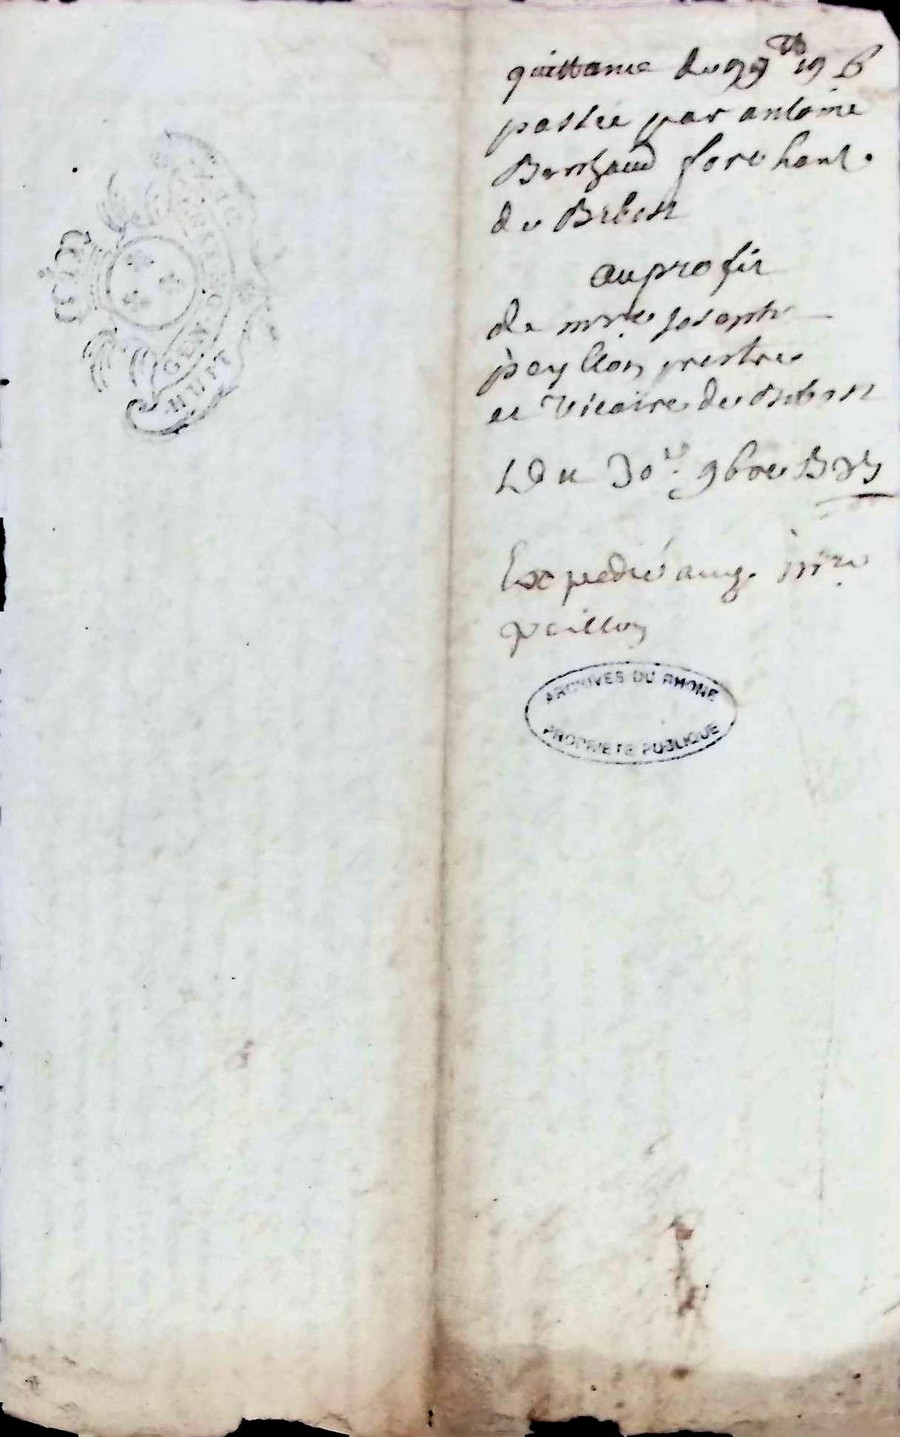 quittance de 99 tt 19 s
passée par antoine
Berthaud forchant
de Bibost
au profit
de mre Joseph
peyllon prestre
et Vicaire de Bibost
Du 30e 9bre
Expedié aud. mre
peillon
ARCHIVES DU RHONE
PROPRIETE PUBLIQUE
GEN
HUIT